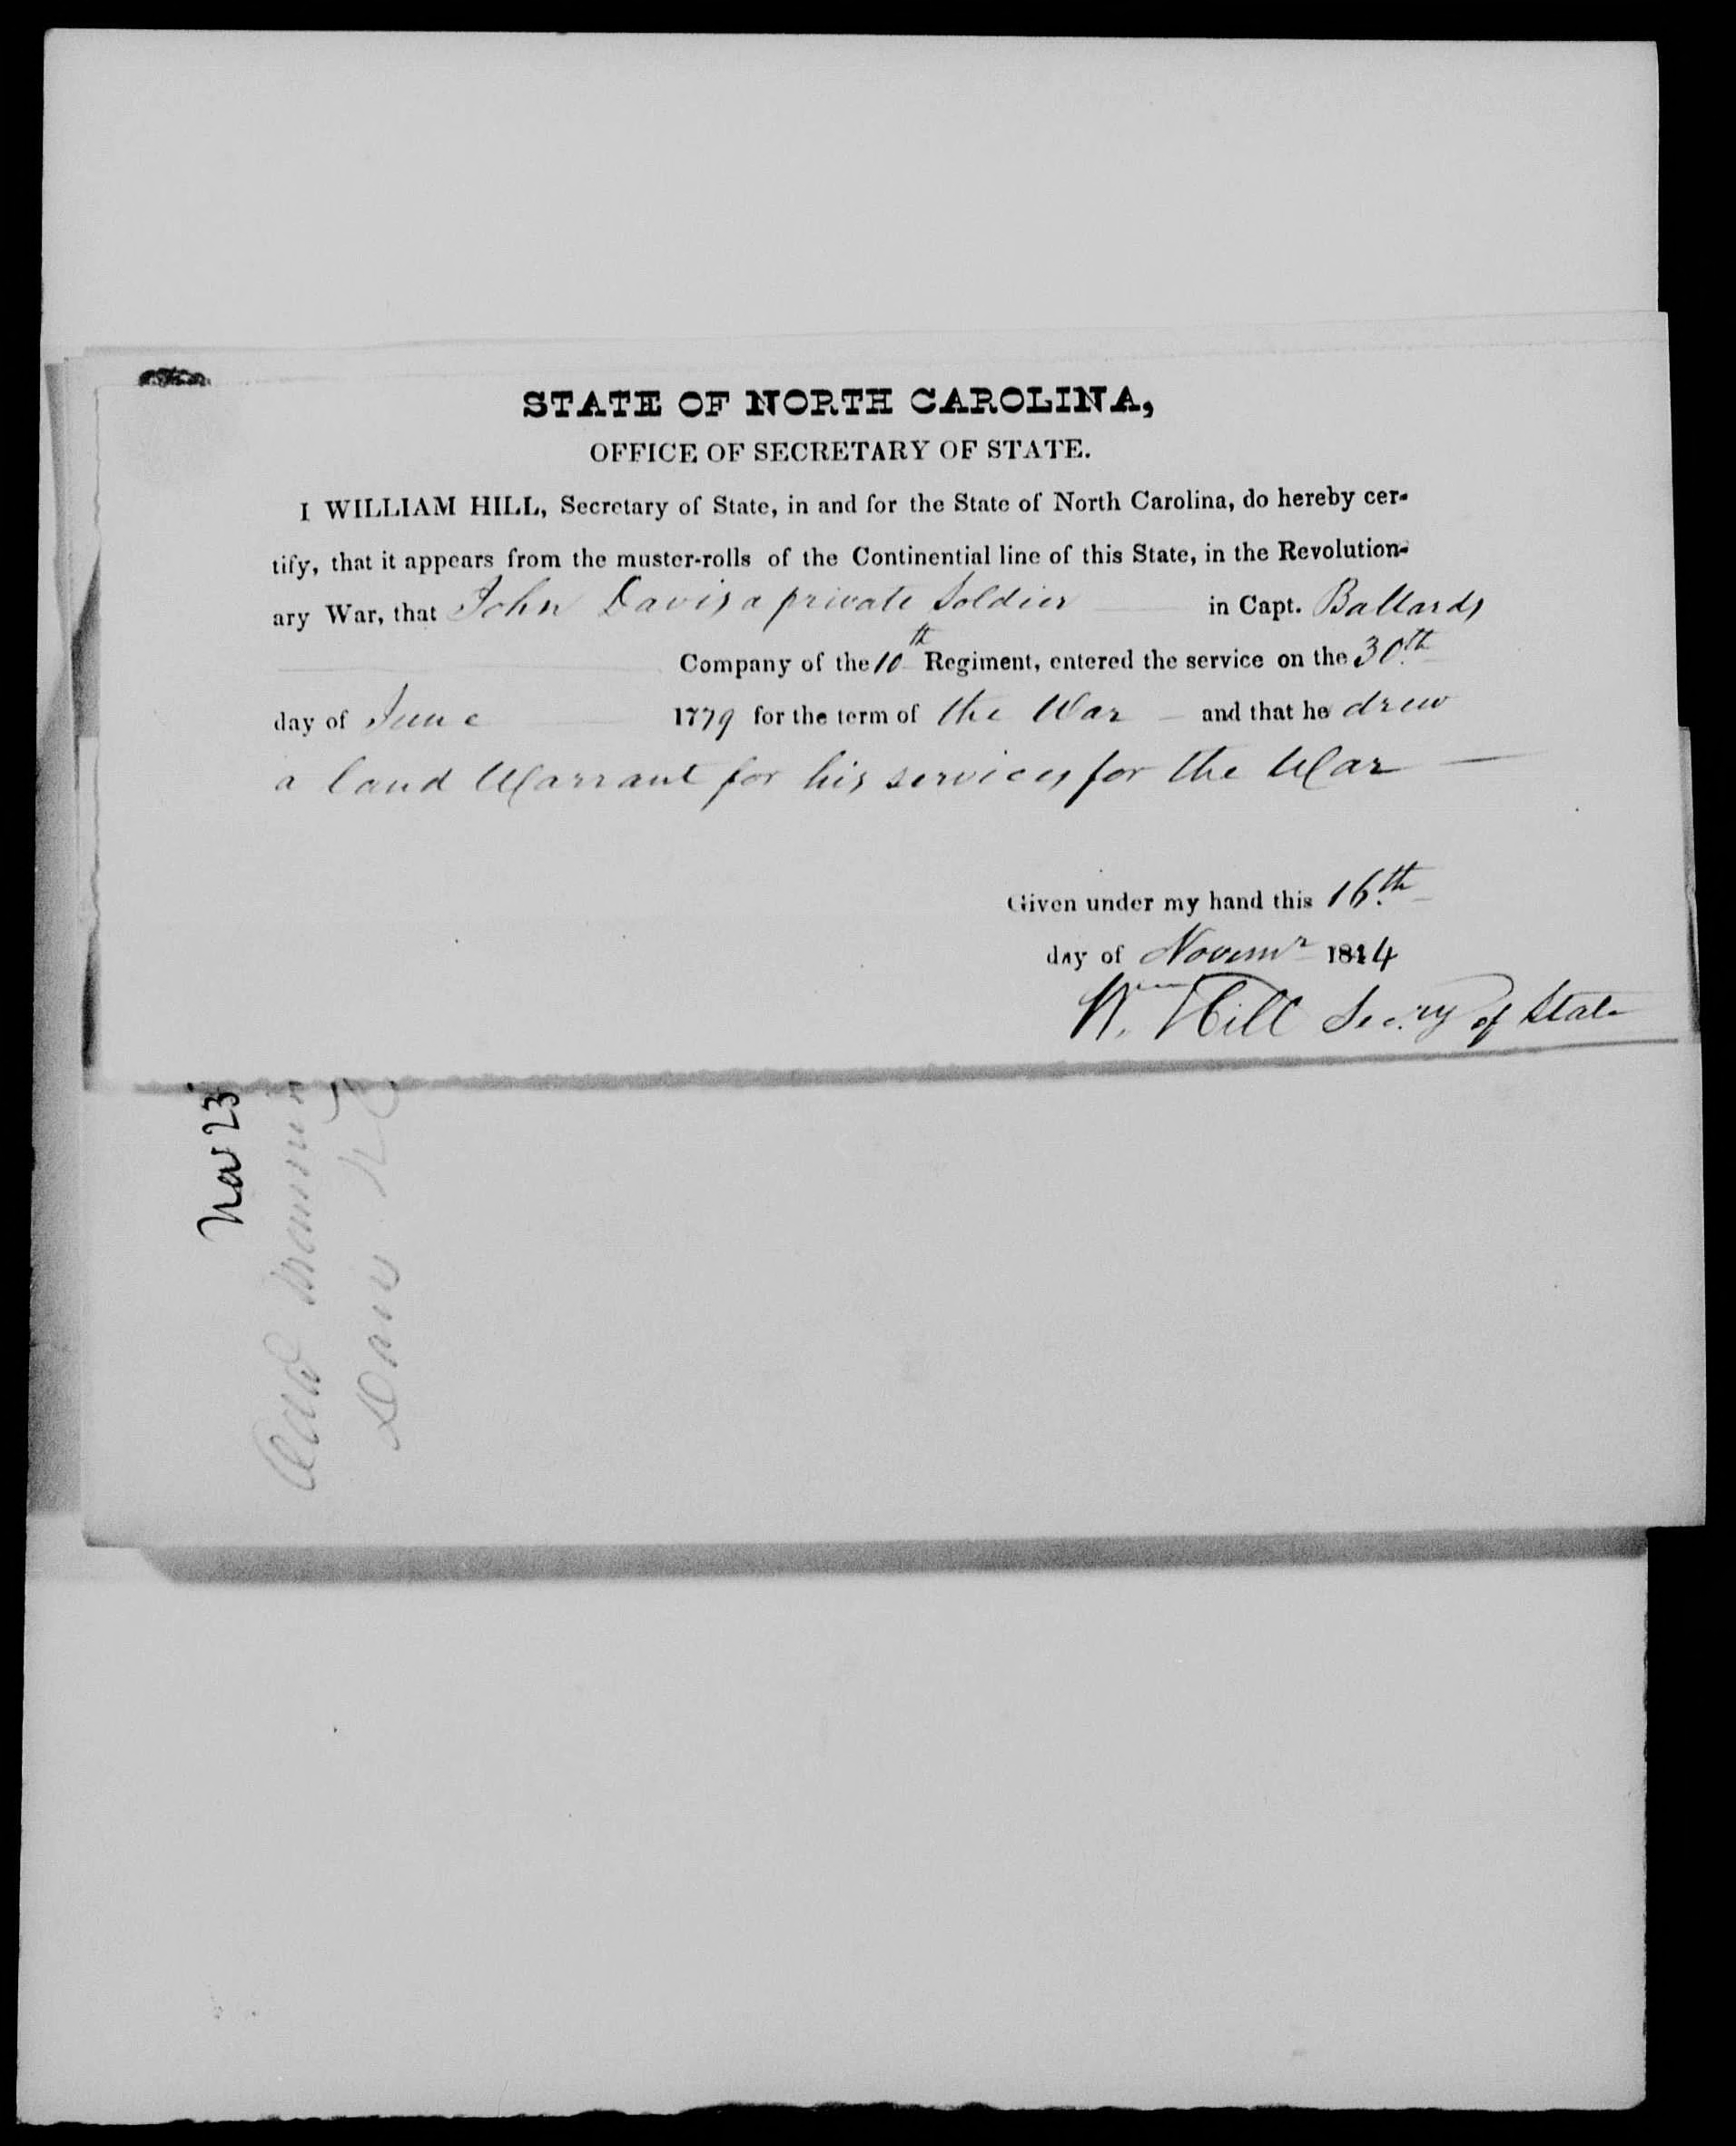 STATE OF NORTH CAROLINA,
OFFICE OF SECRETARY OF STATE.
I WILLIAM HILL, Secretary of State, in and for the State of North Carolina, do hereby cer-
tify, that it appears from the muster-rolls of the Continential line of this State, in the Revolution-
ary War, that John Davis a private Soldier in Capt. Ballards
Company of the 10th Regiment, entered the service on the 30th
day of June 1779 for the term of the War and that he drew
a land Warrant for his services for the War
Given under my hand this 16th
day of Novemr 1844
Wm Hill Secry of State
Nov 23
Davis